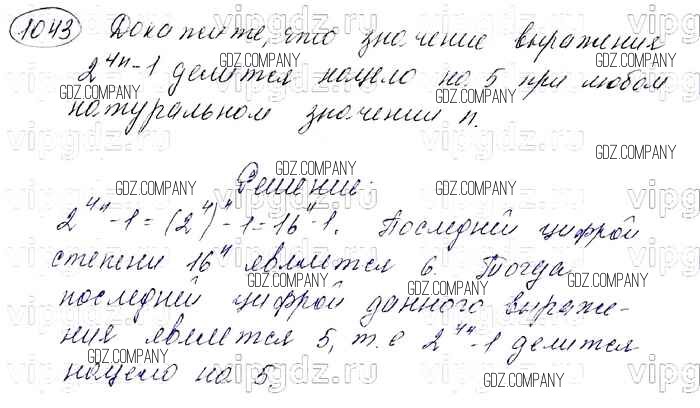 1043 Докажите, что значение выражения
2⁴ⁿ-1 делится нацело на 5 при любом
натуральном значении n.
Решение:
2⁴ⁿ-1=(2⁴)ⁿ-1=16ⁿ-1. Последней цифрой
степени 16ⁿ является 6. Тогда
последней цифрой данного выраже-
ния является 5, т.е 2⁴ⁿ-1 делится
нацело на 5.